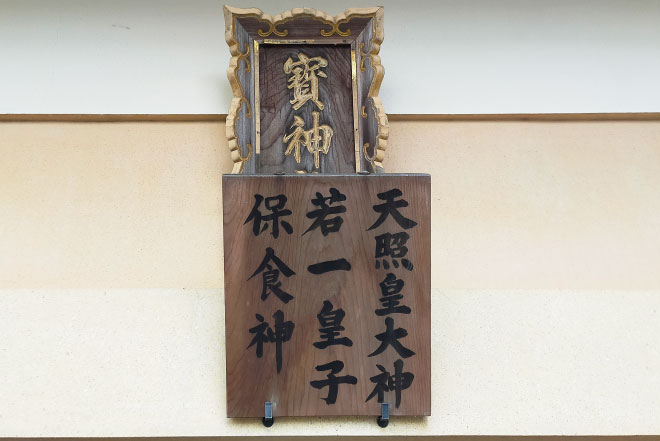 寳神
天照皇大神
若一皇子
保食神